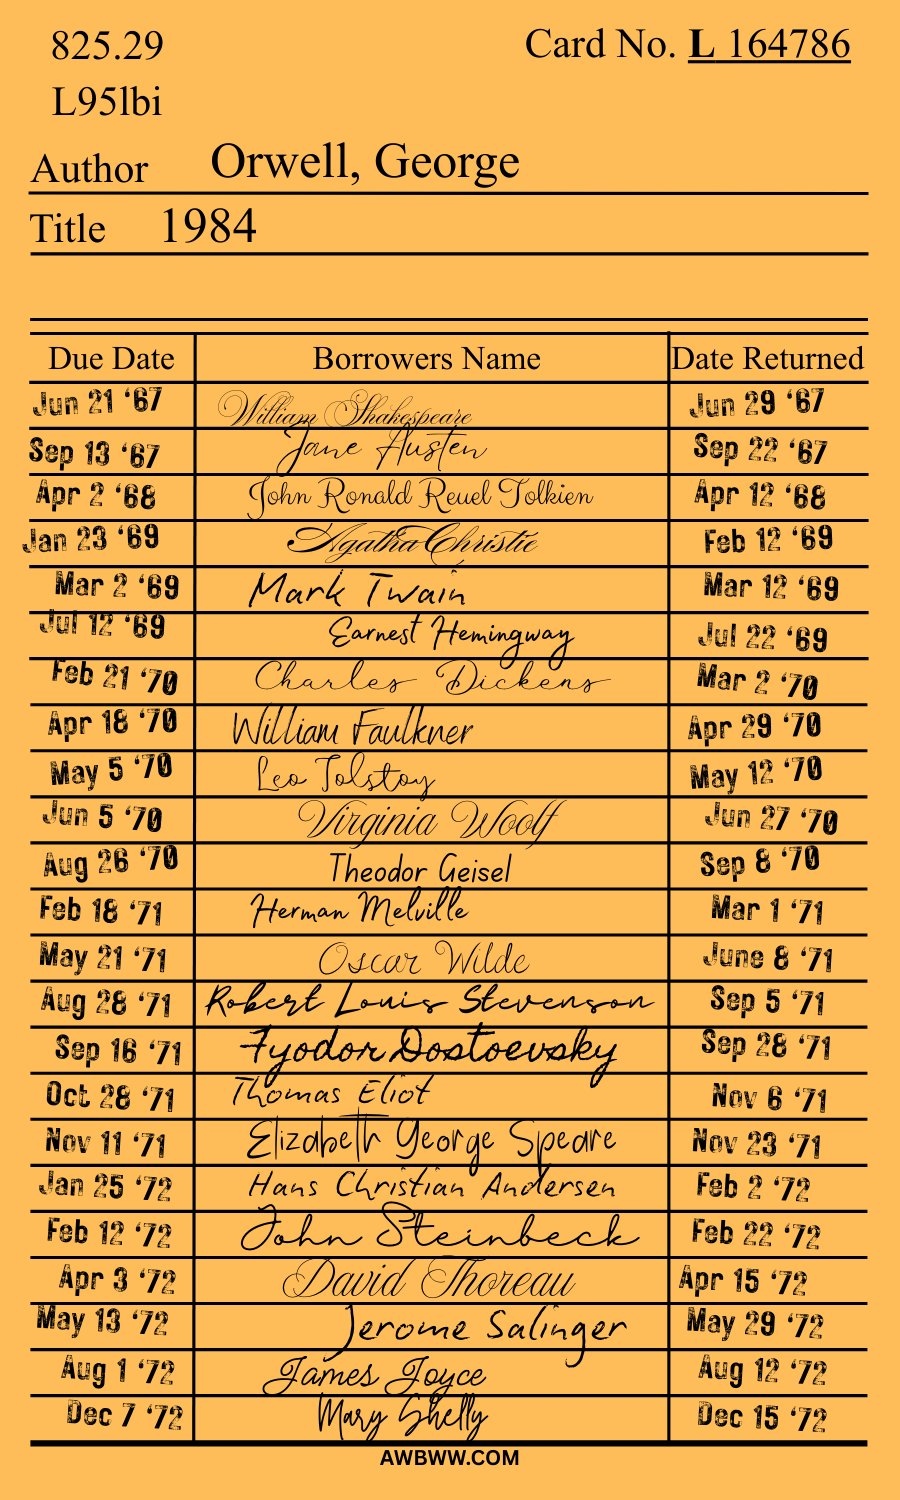 825.29 Card No. L 164786
L95lbi
Author Orwell, George
Title 1984
Due Date Borrowers Name Date Returned
Jun 21 ‘67 William Shakespeare Jun 29 ‘67
Sep 13 ‘67 Jane Austen Sep 22 ‘67
Apr 2 ‘68 John Ronald Reuel Tolkien Apr 12 ‘68
Jan 23 ‘69 Agatha Christie Feb 12 ‘69
Mar 2 ‘69 Mark Twain Mar 12 ‘69
Jul 12 ‘69 Earnest Hemingway Jul 22 ‘69
Feb 21 ‘70 Charles Dickens Mar 2 ‘70
Apr 18 ‘70 William Faulkner Apr 29 ‘70
May 5 ‘70 Leo Tolstoy May 12 ‘70
Jun 5 ‘70 Virginia Woolf Jun 27 ‘70
Aug 26 ‘70 Theodor Geisel Sep 8 ‘70
Feb 18 ‘71 Herman Melville Mar 1 ‘71
May 21 ‘71 Oscar Wilde June 8 ‘71
Aug 28 ‘71 Robert Louis Stevenson Sep 5 ‘71
Sep 16 ‘71 Fyodor Dostoevsky Sep 28 ‘71
Oct 28 ‘71 Thomas Eliot Nov 6 ‘71
Nov 11 ‘71 Elizabeth George Speare Nov 23 ‘71
Jan 25 ‘72 Hans Christian Andersen Feb 2 ‘72
Feb 12 ‘72 John Steinbeck Feb 22 ‘72
Apr 3 ‘72 David Thoreau Apr 15 ‘72
May 13 ‘72 Jerome Salinger May 29 ‘72
Aug 1 ‘72 James Joyce Aug 12 ‘72
Dec 7 ‘72 Mary Shelly Dec 15 ‘72
AWBWW.COM